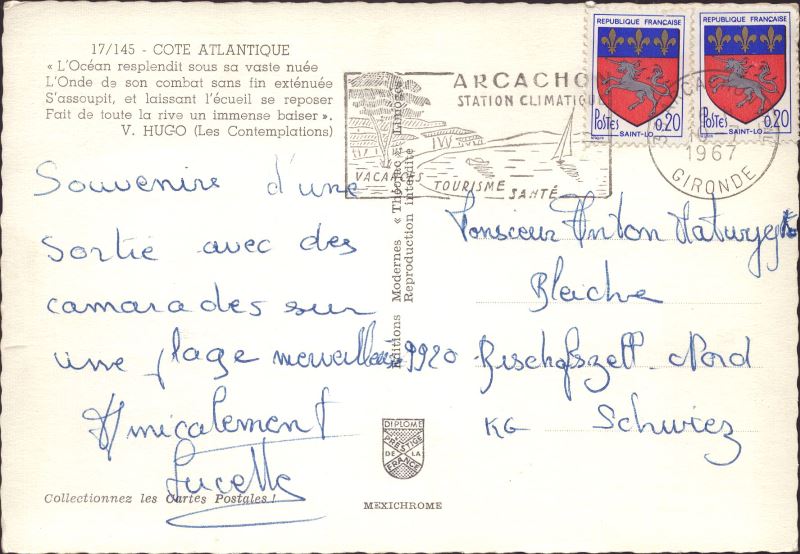 17/145 - COTE ATLANTIQUE
« L'Océan resplendit sous sa vaste nuée
L'Onde de son combat sans fin exténuée
S'assoupit, et laissant l'écueil se reposer
Fait de toute la rive un immense baiser ».
V. HUGO (Les Contemplations)
Souvenirs d'une
sortie avec des
camarades sur
une plage merveilleuse
Amicalement
Lucette
Collectionnez les Cartes Postales !
Editions Modernes « Théojac » Limoges
Reproduction interdite
DIPLOME
PRESTIGE
DE LA
FRANCE
MEXICHROME
ARCACHON
STATION CLIMATIQUE
VACANCES
TOURISME
SANTÉ
REPUBLIQUE FRANÇAISE
POSTES 0,20
SAINT-LO
REPUBLIQUE FRANÇAISE
POSTES 0,20
SAINT-LO
1967
GIRONDE
Monsieur Anton
Bleiche
9920 Bischofszell-Nord
KG Schwiez